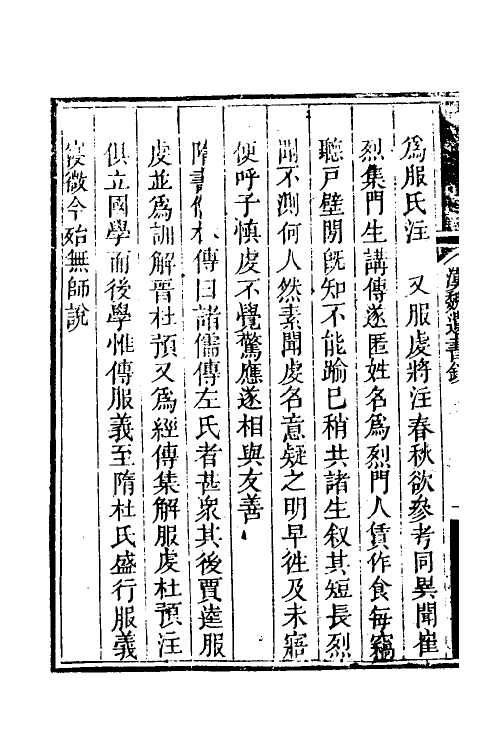 為服氏注　又服虔將注春秋欲參考同異聞崔
烈集門生講傳遂匿姓名為烈門人賃作食每竊
聽戶壁間旣知不能踰已稍共諸生叙其短長烈
聞不測何人然素聞虔名意疑之明早徃及未寤
便呼子慎虔不覺驚應遂相與友善
隋書傳曰諸儒傳左氏者甚衆其後賈逵服
虔並為訓解晉杜預又為經傳集解服虔杜預注
俱立國學而後學惟傳服義至隋杜氏盛行服義
寖微今殆無師說
漢魏遺書鈔